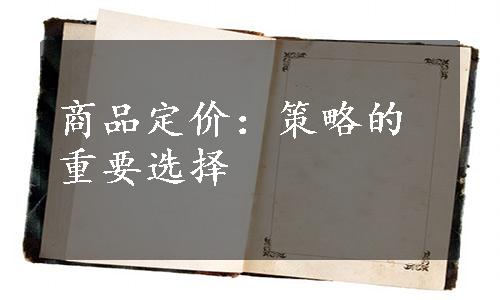 商品定价：策略的
重要选择